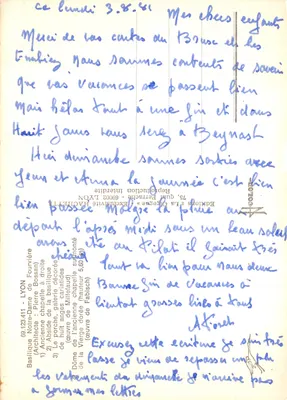 ce lundi 3.8.81
Mes chers enfants
Merci de vos cartes du Brusc et les
Embiez nous sommes contents de savoir
que vos vacances se passent bien
Mais hélas tout a une fin et dans
Huit jours vous serez à Beynost
Hier dimanche sommes sortis avec
Jean et Anna la journée c'est bien
bien passée Malgré la pluie au
départ l'après midi sous un beau soleil
avons été au Pilat il faisait très
tout va bien pour nous deux
Bonne fin de vacances a
bientot grosses bises à tous
Excusez cette ecriture je suis très
lasse je viens de repasser un peu
les vetements du dimanche je n'arrive pas
a former mes lettres
69.123.411 - LYON
Basilique Notre-Dame de Fourvière
(Architecte : Pierre Bossan)
1) Ancienne chapelle à droite
2) Abside de la basilique
3) La chapelle, galerie des
de huit sous les
(œuvre de Millefaut)
Dôme de l'ancienne chapelle
de la Vierge dorée (hauteur 5,60
(œuvre de Fabisch)
Reproduction interdite